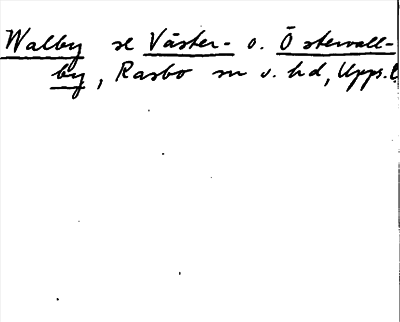 Walby se Väster- o. Östervall-
by, Rasbo sn o. hd, Upps. l.